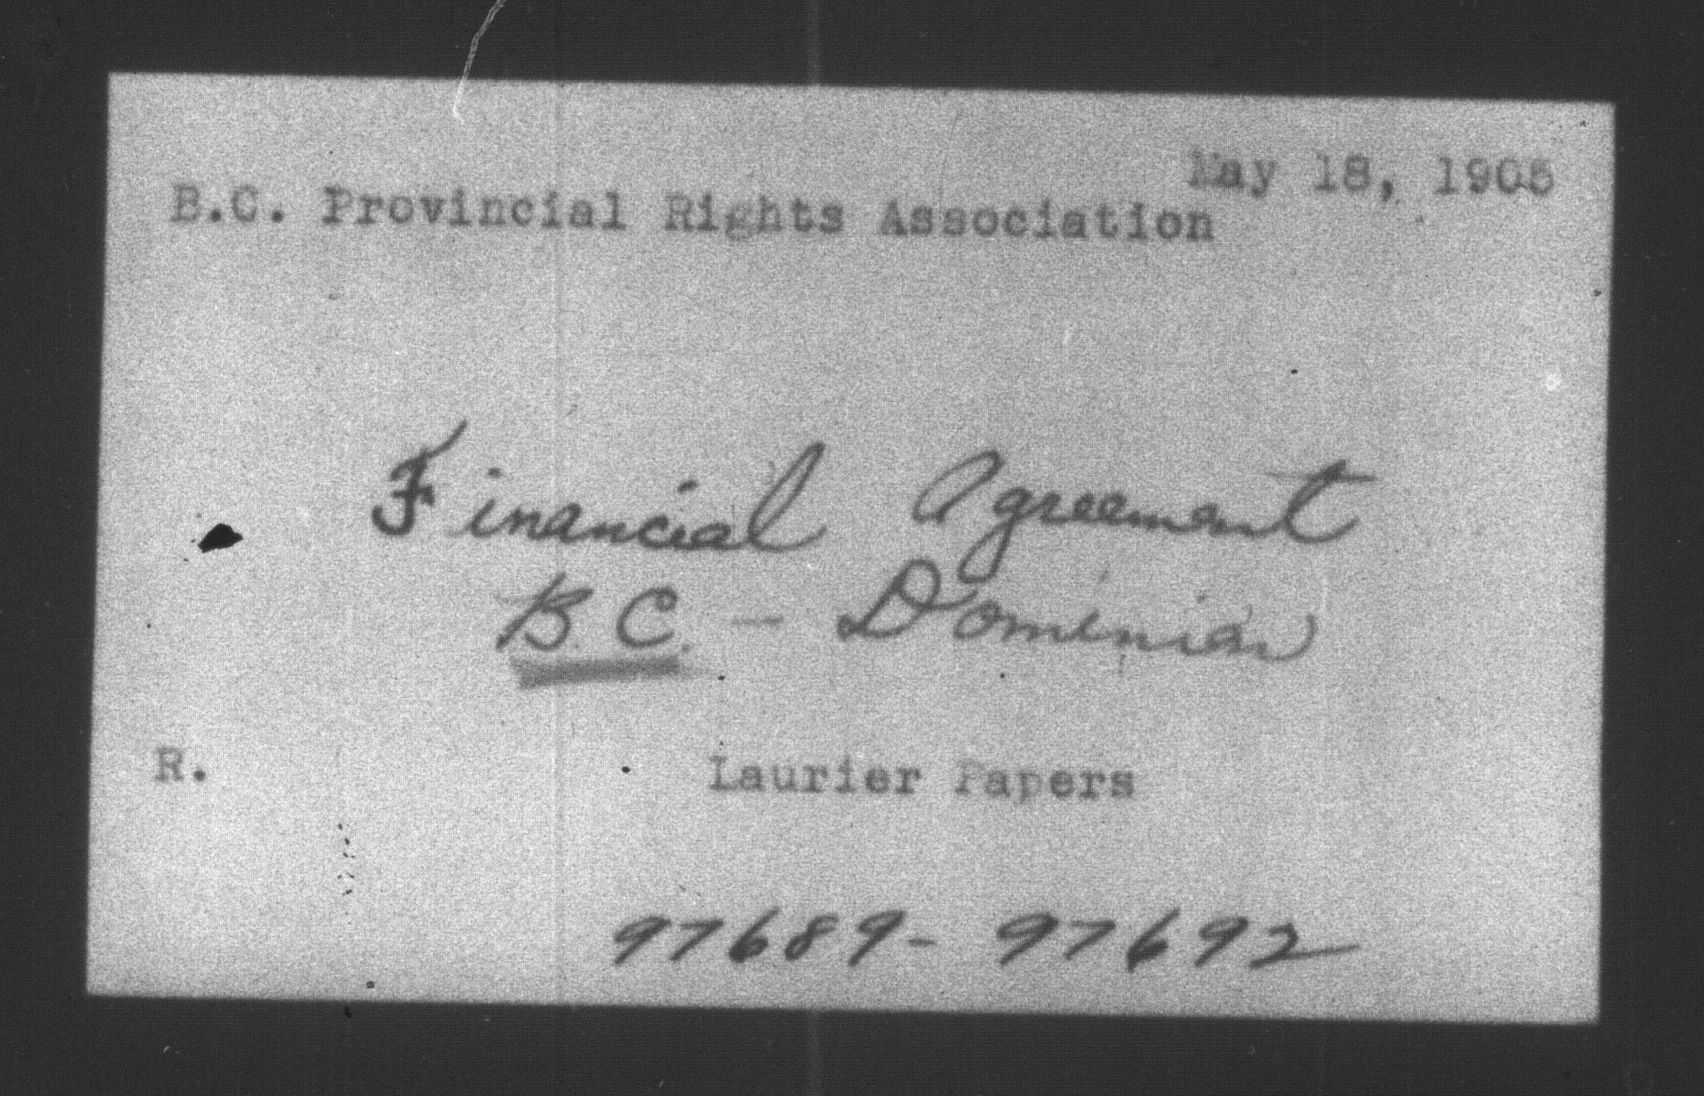 May 18, 1905
B.C. Provincial Rights Association
Financial Agreement
B.C. - Dominion
R.
Laurier Papers
97689- 97692